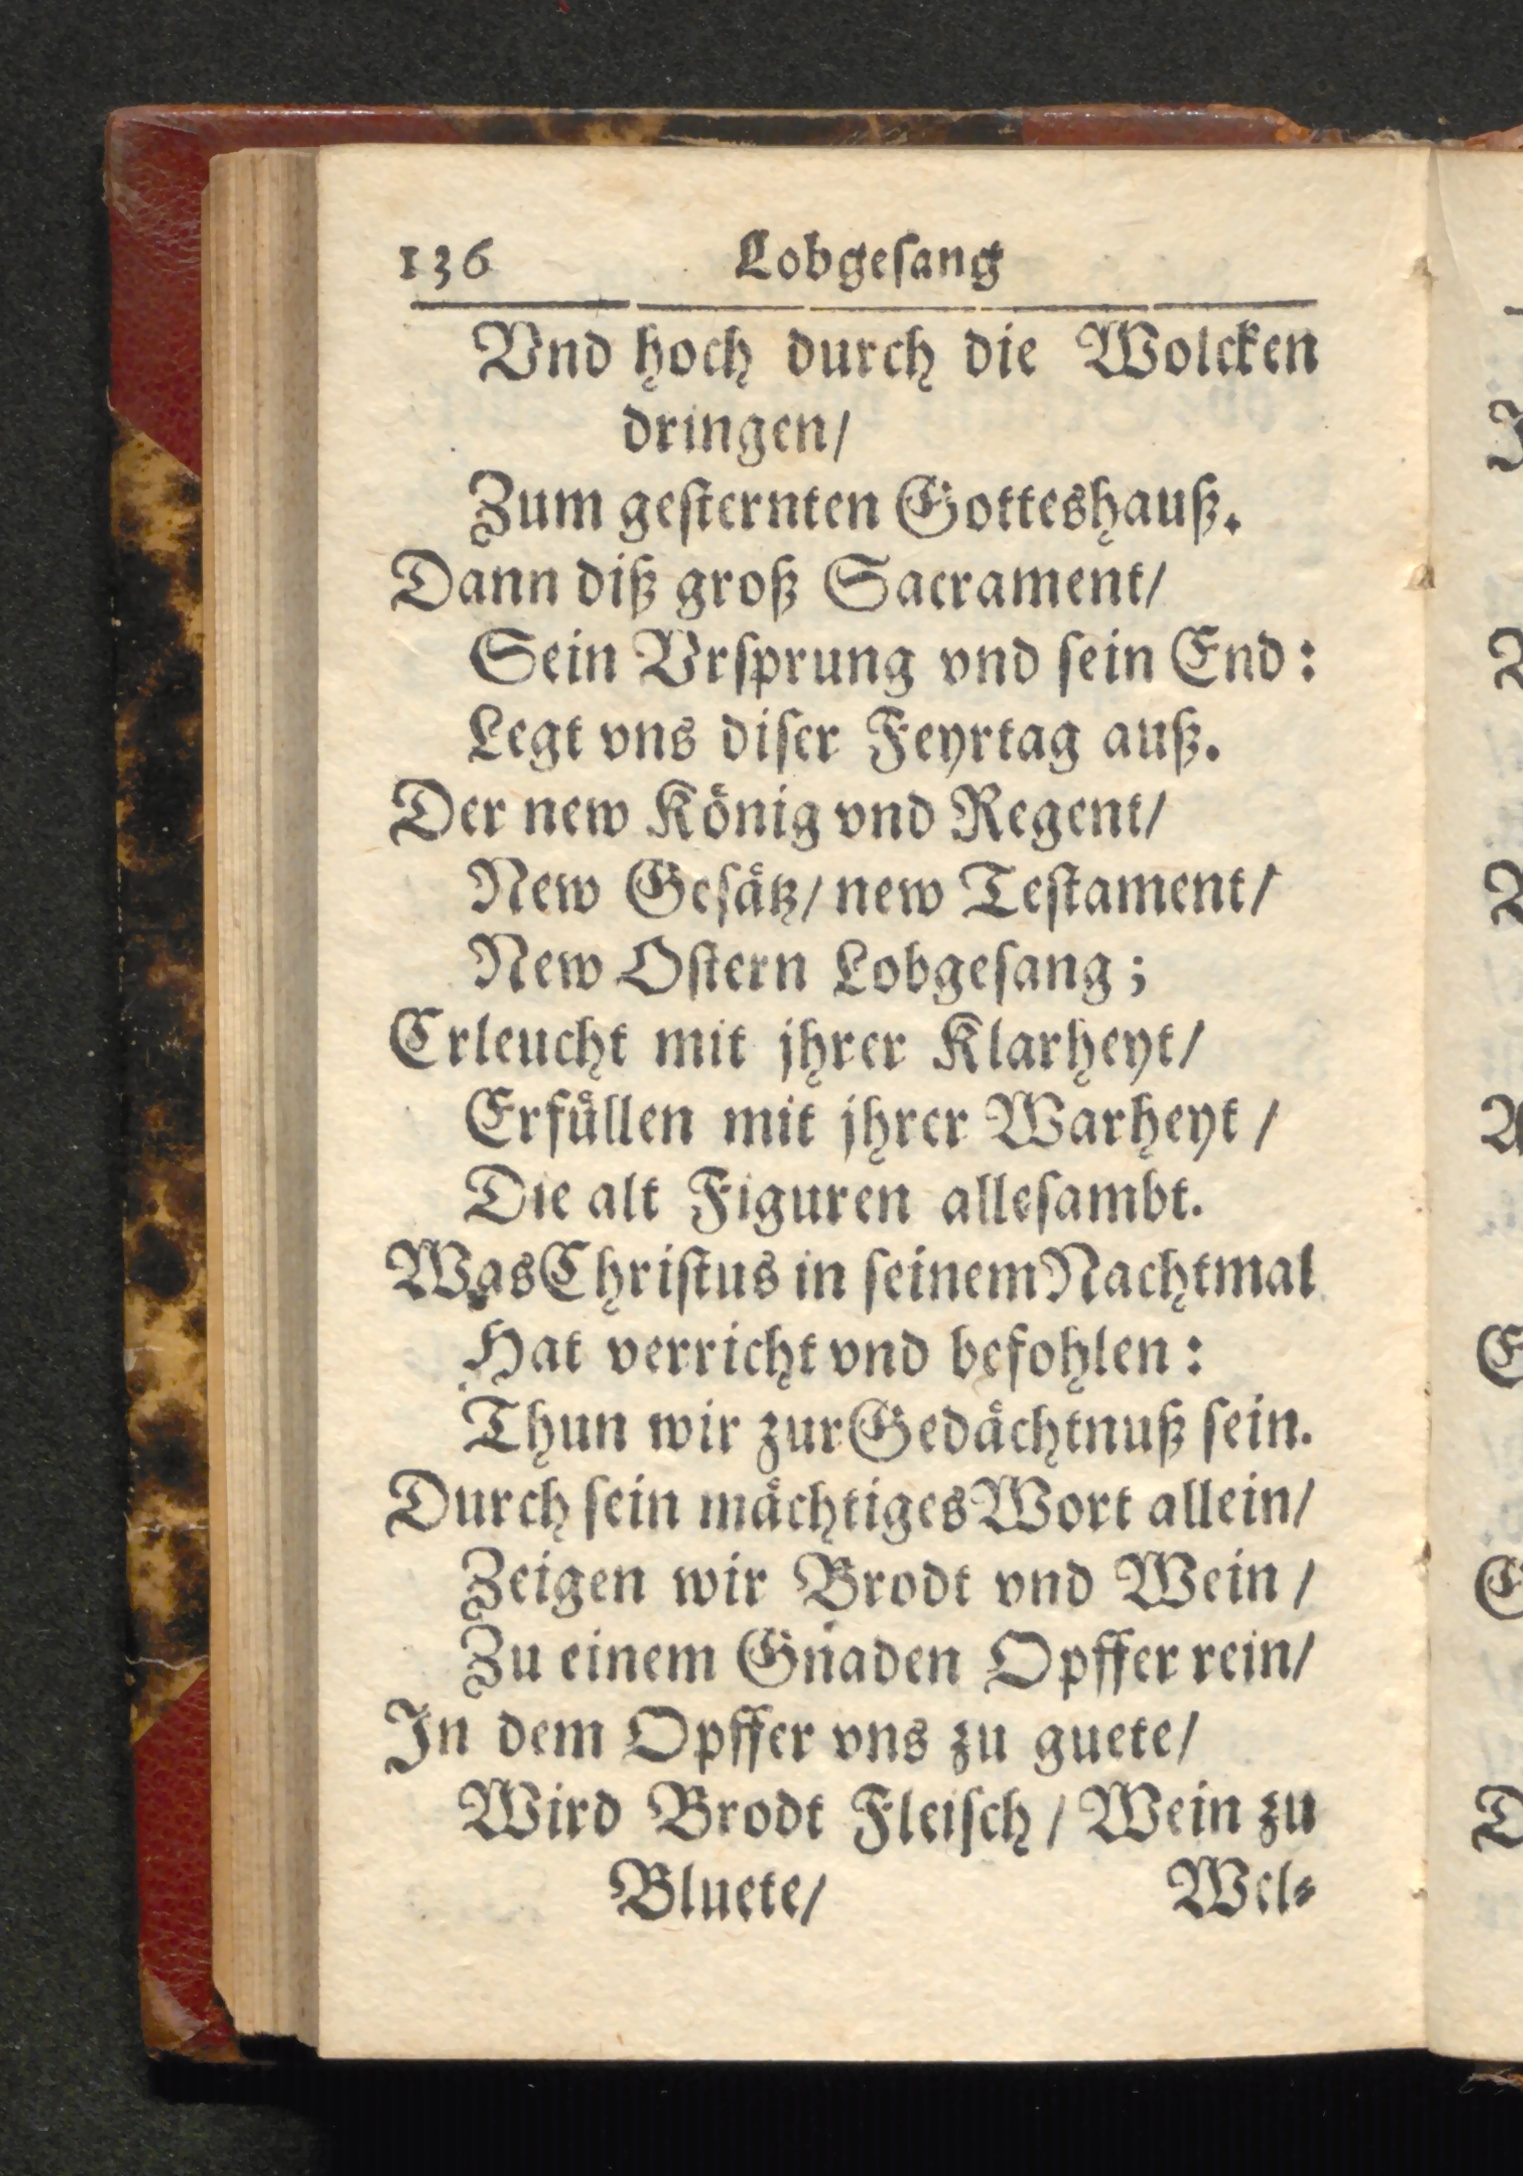 136 Lobgeſang
Vnd hoch durch die Wolcken
dringen/
Zum geſternten Gotteshauß.
Dann diß groß Sacrament/
Sein Vrſprung vnd ſein End:
Legt vns diſer Feyrtag auß.
Der new Koͤnig vnd Regent/
New Geſaͤtz/ new Teſtament/
New Oſtern Lobgeſang;
Erleucht mit jhrer Klarheyt/
Erfuͤllen mit jhrer Warheyt /
Die alt Figuren alleſambt.
Was Chriſtus in ſeinem Nachtmal
Hat verricht vnd befohlen:
Thun wir zur Gedaͤchtnuß ſein.
Durch ſein maͤchtiges Wort allein/
Zeigen wir Brodt vnd Wein /
Zu einem Gnaden Opffer rein/
In dem Opffer vns zu guete/
Wird Brodt Fleiſch / Wein zu
Bluete/ Wel⸗